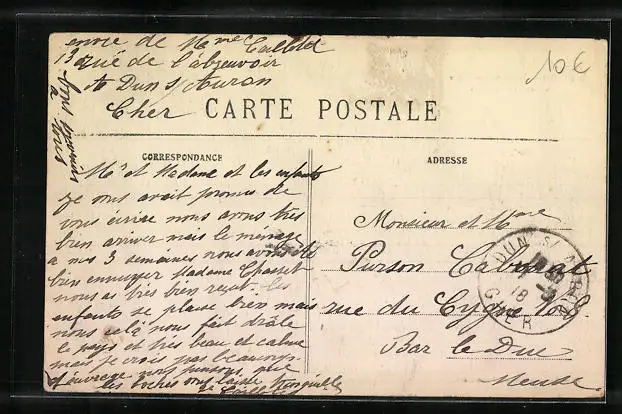 envoi de Mme
13 rue de l'abreuvoir
Dun s/ Auron
Cher
bons
à tous
10€
CARTE POSTALE
CORRESPONDANCE
ADRESSE
Mr et Madame et les enfants
je vous avait promi de
vous écrire nous avons très
bien arriver mais le
a nos 3 semaines nous avons
bien ennuyer Madame
nous as très bien les
enfants se plaise bien mais
nous celà nous fait drôle
le pays et très beau et calme
mais je crois pas beaucoup
d'ouvrage nous que
les boches vous laisse tranquille
Monsieur et Mme
Purson
rue du Cygne
Bar le Duc
Meuse
DUN S/ AURON
18
CHER